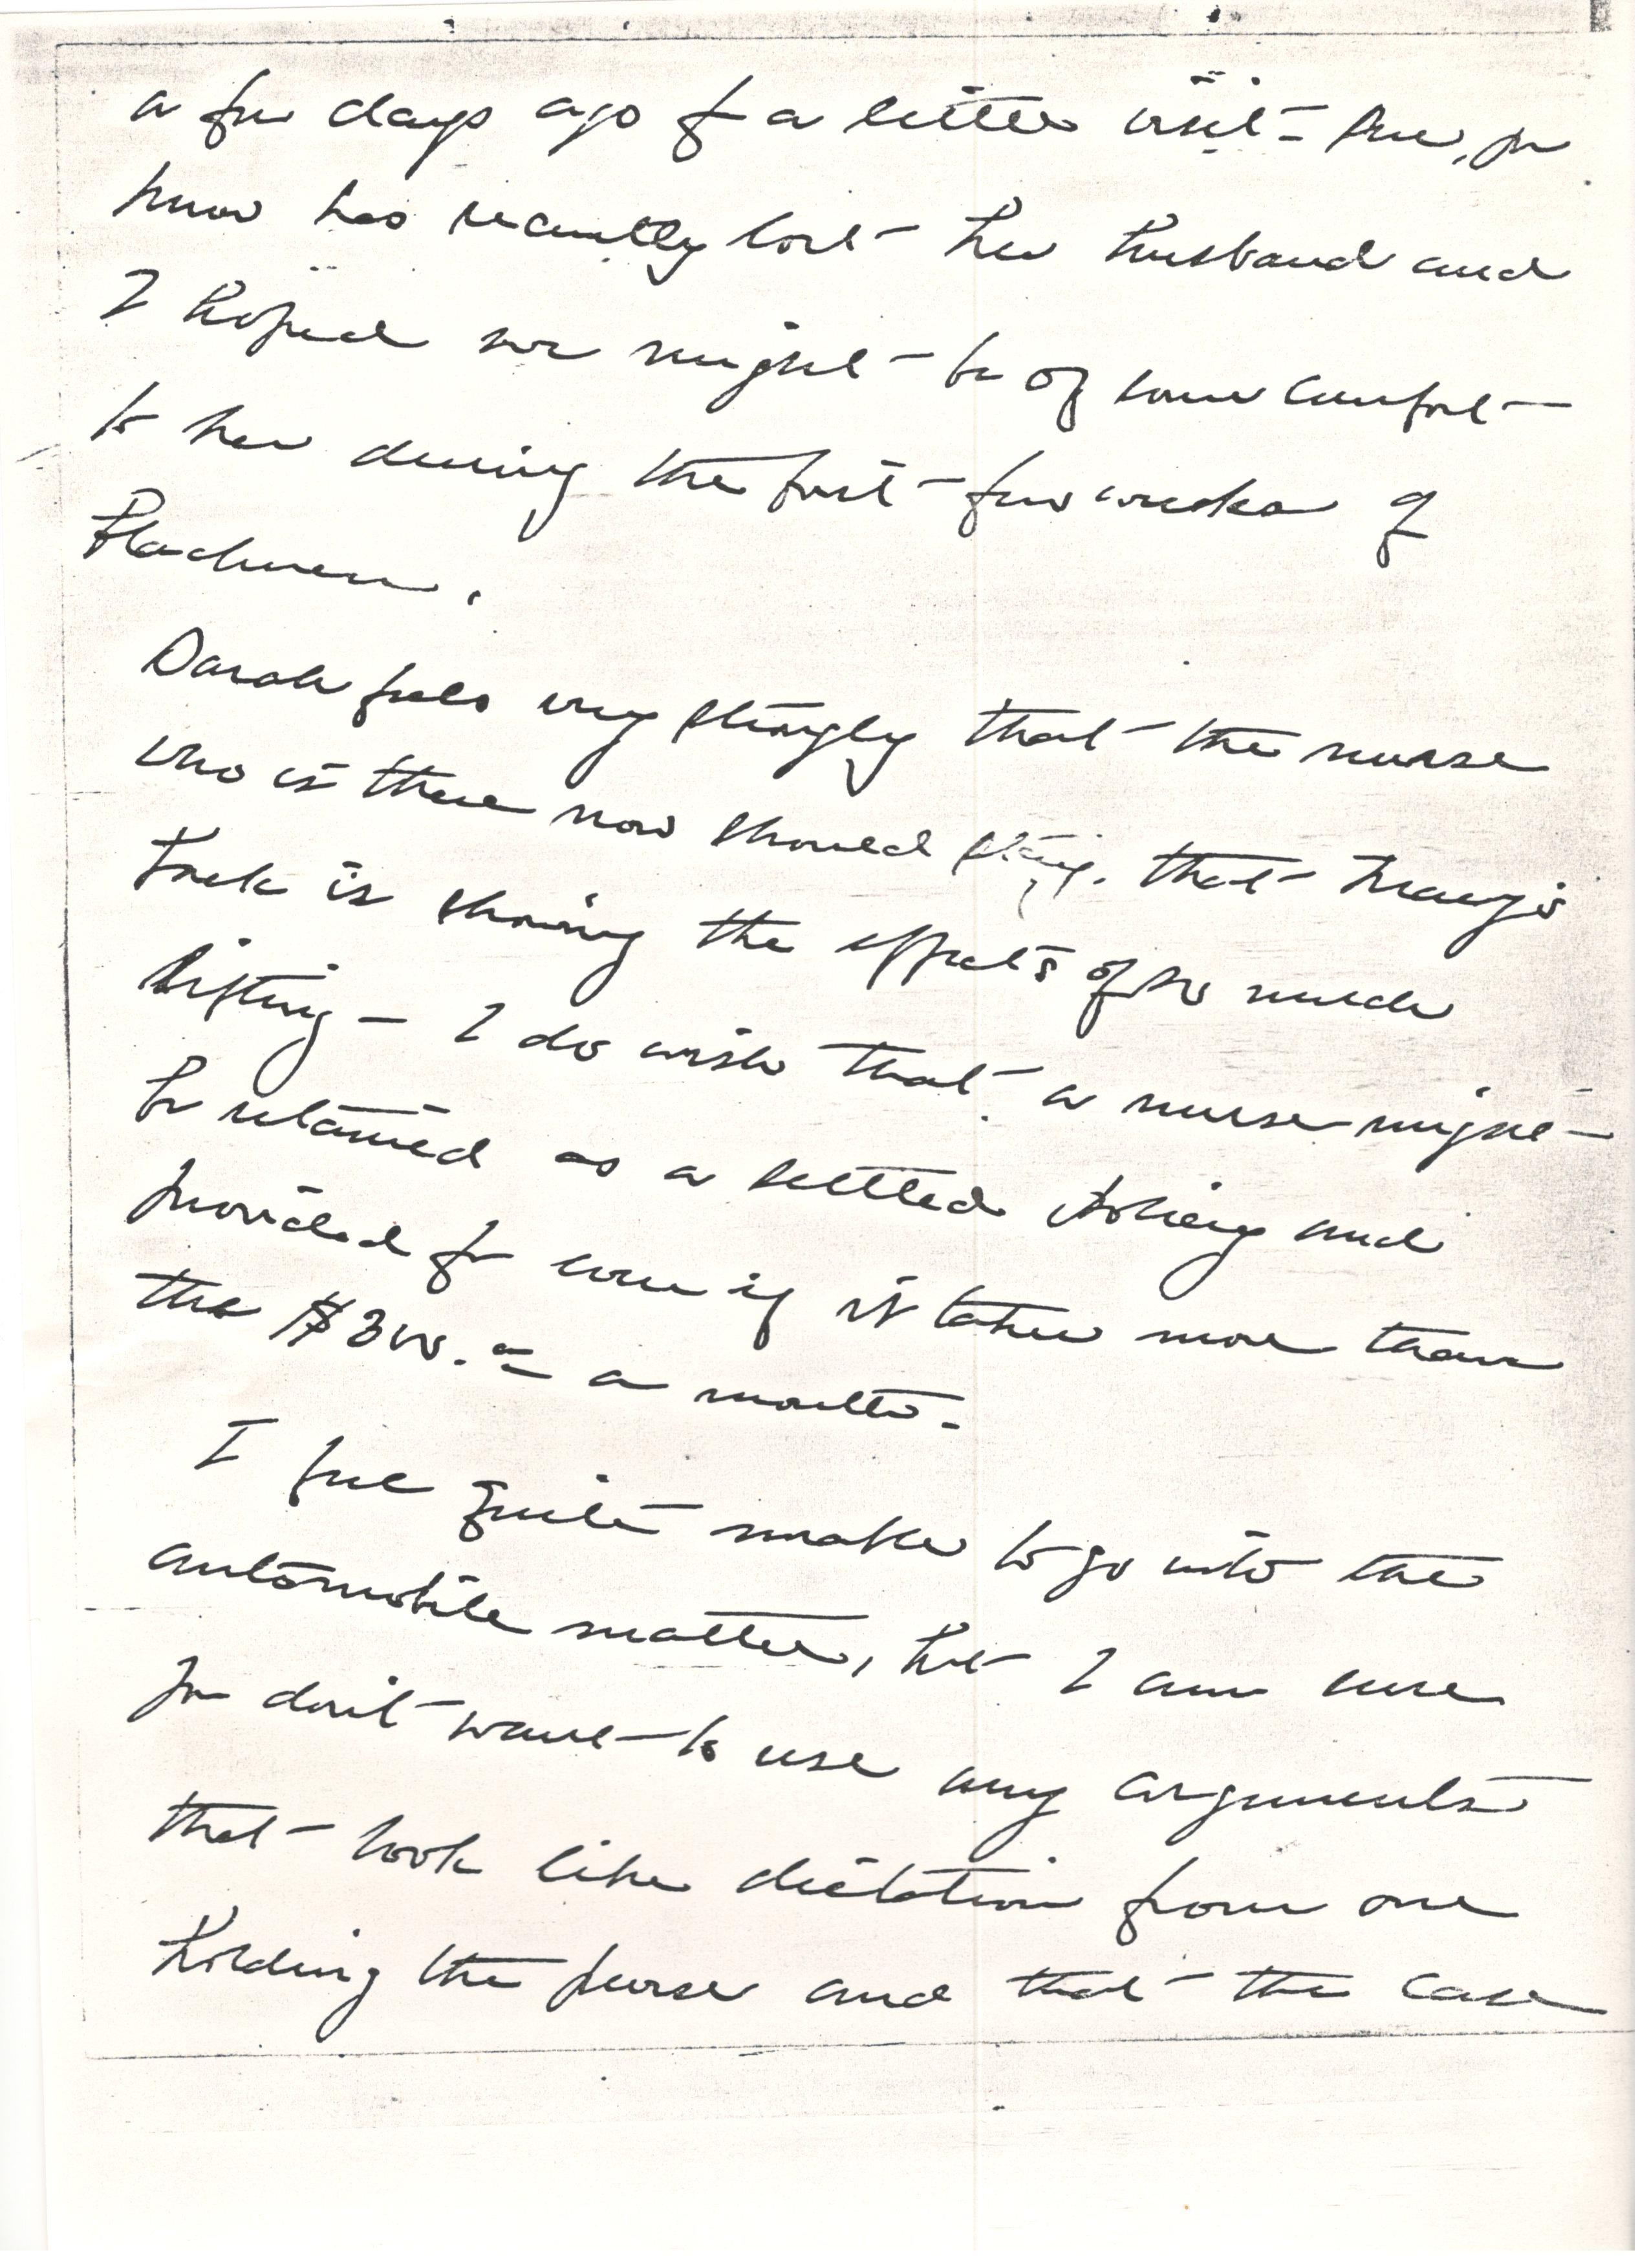 a few days ago for a little visit – She, you
know has recently lost her husband and
I hoped we might be of some comfort
to her during the first few weeks of
sadness.
Sarah feels very strongly that the nurse
who is there now should stay. that Mary's
back is showing the effects of so much
lifting – I do wish that a nurse might
be retained as a settled policy and
provided for even if it takes more than
the $300.= a month.
I feel quite unable to go into the
automobile matter, but I am sure
you don't want to use any arguments
that look like dictation from one
holding the purse and that the case